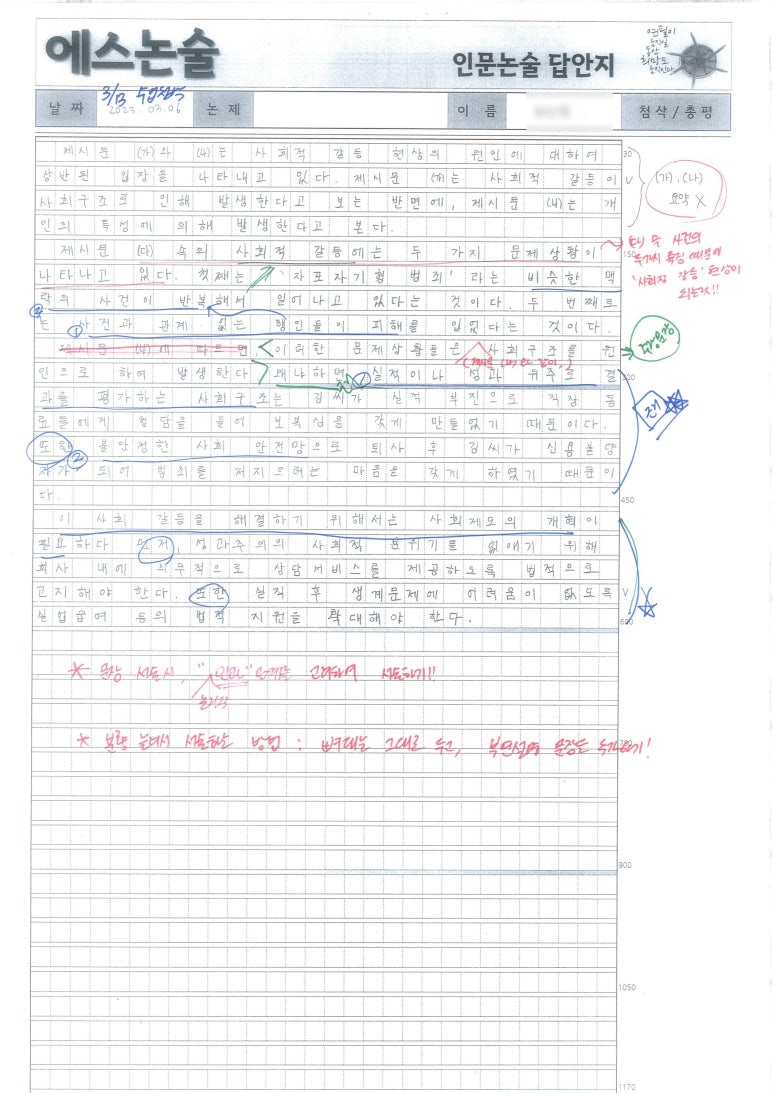 에스논술
인문논술 답안지
날 짜
3/13
2023. 03. 06
논 제
이 름
첨삭/총평
제시문 (가)와 (나)는 사회적 갈등 현상의 원인에 대하여
30
상반된 입장을 나타내고 있다. 제시문 (가)는 사회적 갈등이
V
사회구조로 인해 발생한다고 보는 반면에, 제시문 (나)는 개
인의 특성에 의해 발생한다고 본다.
(가), (나)
요약 X
제시문 (다) 속의 사회적 갈등에는 두 가지 문제상황이
150
나타나고 있다. 첫째는 '자포자기형 범죄' 라는 비슷한 맥
락의 사건이 반복해서 일어나고 있다는 것이다. 두 번째로
② ①
는 사건과 관계 없는 행인들이 피해를 입었다는 것이다.
제시문 (나)에 따르면, 이러한 문제상황들은 사회구조를 원
인으로 하여 발생한다. 왜냐하면 실적이나 성과 위주로 결
300
과를 평가하는 사회구조는 김씨가 실적 부진으로 직장 동
료들에게 험담을 들어 보복심을 갖게 만들었기 때문이다.
또한 불안정한 사회 안전망으로 퇴사 후 김씨가 신용불량
②
자가 되어 범죄를 저지르려는 마음을 갖게 하였기 때문이
다.
450
이 사회 갈등을 해결하기 위해서는 사회제도의 개혁이
필요하다. 먼저, 성과주의의 사회적 분위기를 없애기 위해
회사 내에 의무적으로 상담서비스를 제공하도록 법적으로
고지해야 한다. 또한 실직 후 생계문제에 어려움이 없도록
V
실업급여 등의 법적 지원을 확대해야 한다.
600
* 문장 서술시, "인과" 관계를 고려하여 서술하기!!
논리적
* 분량 늘려서 서술하는 방법 : 뼈대는 그대로 두고, 부연설명 문장을 추가하기!
900
1050
1170